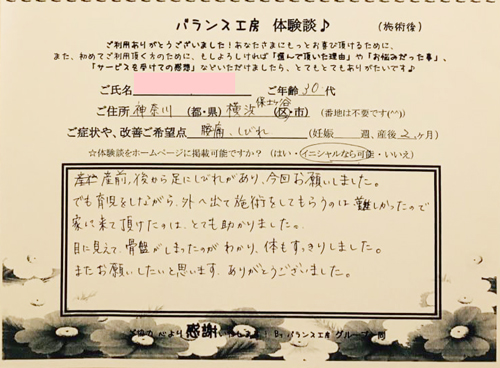 バランス工房 体験談♪ (施術後)
ご利用ありがとうございました！あなたさまにもっとお喜び頂けるために、
また、初めてご利用頂く方のために、もしよろしければ「選んで頂いた理由」や「お悩みだった事」、
「サービスを受けての感想」などいただけましたら、とてもとてもありがたいです♪
ご氏名 ご年齢 30代
ご住所 神奈川 (都・県) 横浜 保土ヶ谷 (区・市) (番地は不要です(^^))
ご症状や、改善ご希望点 腰痛、しびれ (妊娠 週、産後 2ヶ月)
☆体験談をホームページに掲載可能ですか？ (はい・イニシャルなら可能・いいえ)
産前、後から足にしびれがあり、今回お願いしました。
でも育児をしながら、外へ出て施術をしてもらうのは難しかったので
家に来て頂けたのは、とても助かりました。
目に見えて、骨盤がしまったのがわかり、体もすっきりしました。
またお願いしたいと思います。ありがとうございました。
心より感謝いたします！ By バランス工房 グループ一同